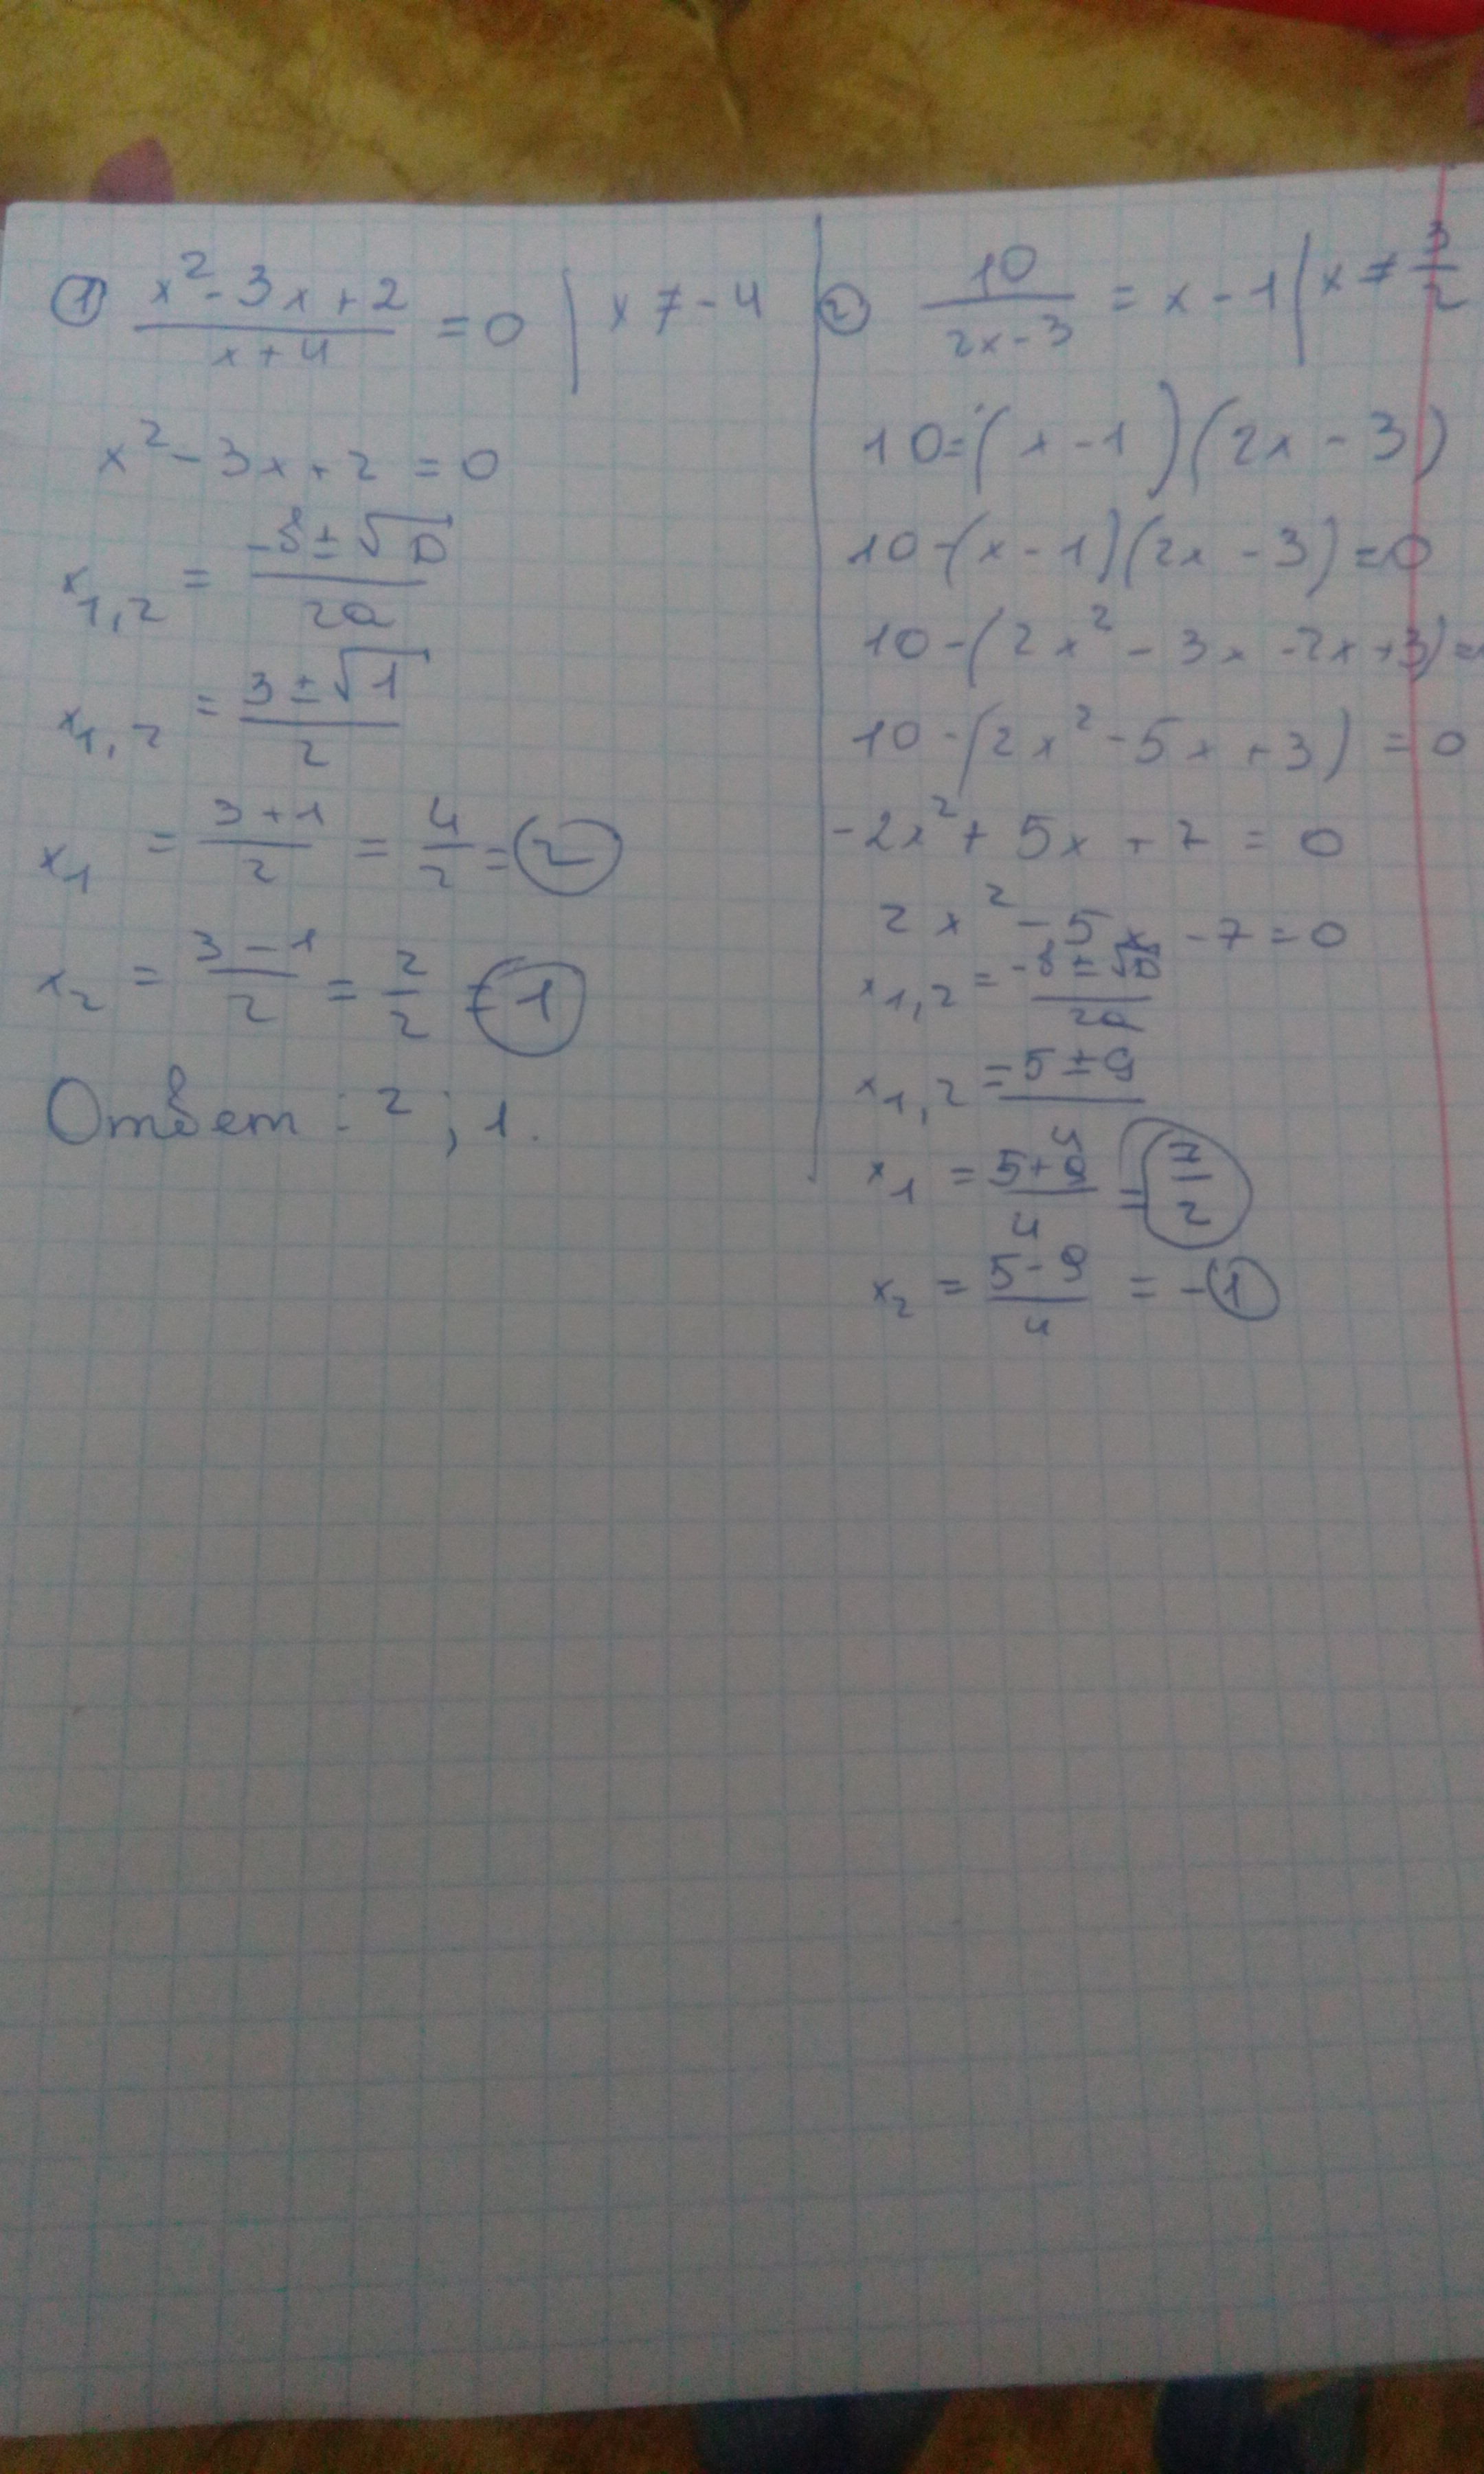 ① (x² - 3x + 2)/(x + 4) = 0 | x ≠ -4
x² - 3x + 2 = 0
x₁,₂ = (-b ± √D)/(2a)
x₁,₂ = (3 ± √1)/2
x₁ = (3 + 1)/2 = 4/2 = 2
x₂ = (3 - 1)/2 = 2/2 = 1
Ответ: 2; 1.
② 10/(2x - 3) = x - 1 | x ≠ 3/2
10 = (x - 1)(2x - 3)
10 - (x - 1)(2x - 3) = 0
10 - (2x² - 3x - 2x + 3) =
10 - (2x² - 5x + 3) = 0
-2x² + 5x + 7 = 0
2x² - 5x - 7 = 0
x₁,₂ = (-b ± √D)/(2a)
x₁,₂ = (5 ± 9)/4
x₁ = (5 + 9)/4 = 7/2
x₂ = (5 - 9)/4 = -1